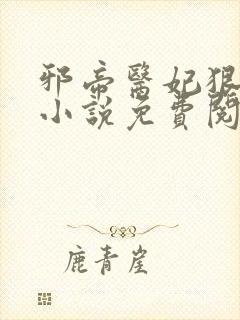 邪帝醫妃狠
小說免費閱
鹿青崖